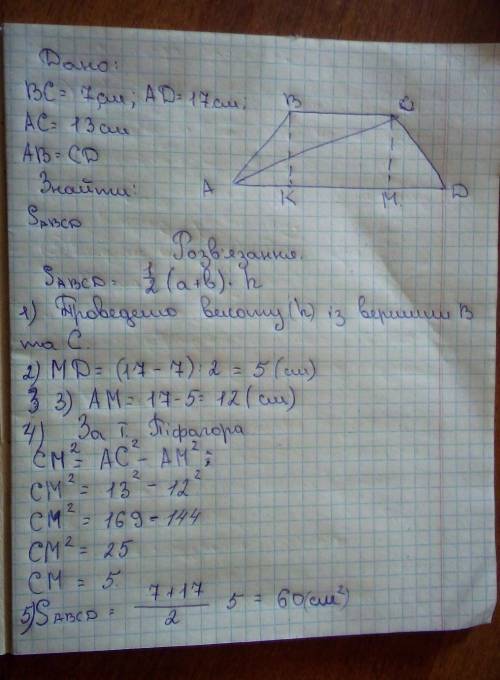 Дано:
BC = 7см; AD = 17см;
AC = 13см
AB = CD
Знайти:
S ABCD
B C
A K M D
Розв'язання.
S ABCD = 1/2 (a+b) · h
1) Проведемо висоту (h) із вершини B
та C.
2) MD = (17 - 7) : 2 = 5 (см)
3 3) AM = 17 - 5 = 12 (см)
4) За т. Піфагора
CM² = AC² - AM²;
CM² = 13² - 12²
CM² = 169 - 144
CM² = 25
CM = 5
5) S ABCD = (7+17)/2 5 = 60 (см²)